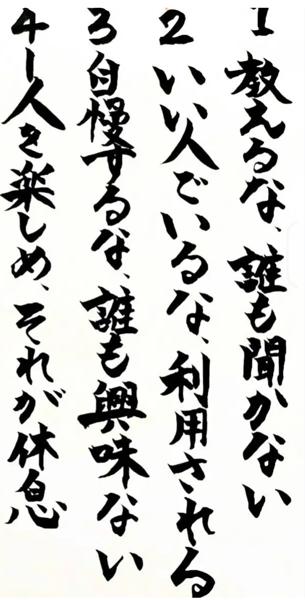 1 教えるな、誰も聞かない
2 いい人でいるな、利用される
3 自慢するな、誰も興味ない
4 一人を楽しめ、それが休息